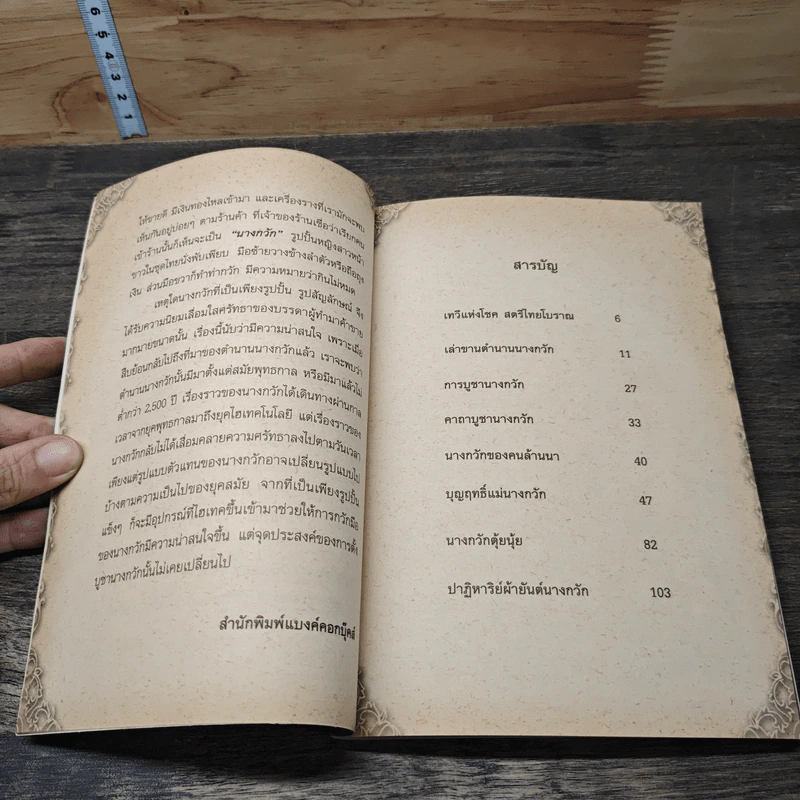 6
5
4
3
2
1
ให้ขายดี มีเงินทองไหลเข้ามา และเครื่องรางที่เรามักจะพบ
เห็นกันอยู่บ่อยๆ ตามร้านค้า ที่เจ้าของร้านเชื่อว่าเรียกคน
เข้าร้านนั้นก็เห็นจะเป็น "นางกวัก" รูปปั้นหญิงสาวหน้า
ขาวในชุดไทยนั่งพับเพียบ มือซ้ายวางข้างลำตัวหรือถือถุง
เงิน ส่วนมือขวาก็ทำท่ากวัก มีความหมายว่ากินไม่หมด
เหตุใดนางกวักที่เป็นเพียงรูปปั้น รูปสัญลักษณ์ จึง
ได้รับความนิยมเลื่อมใสศรัทธาของบรรดาผู้ทำมาค้าขาย
มากมายขนาดนั้น เรื่องนี้นับว่ามีความน่าสนใจ เพราะเมื่อ
สืบย้อนกลับไปถึงที่มาของตำนานนางกวักแล้ว เราจะพบว่า
ตำนานนางกวักนั้นมีมาตั้งแต่สมัยพุทธกาล หรือมีมาแล้วไม่
ต่ำกว่า 2,500 ปี เรื่องราวของนางกวักได้เดินทางผ่านกาล
เวลาจากยุคพุทธกาลมาถึงยุคไฮเทคโนโลยี แต่เรื่องราวของ
นางกวักกลับไม่ได้เสื่อมคลายความศรัทธาลงไปตามวันเวลา
เพียงแต่รูปแบบตัวแทนของนางกวักอาจเปลี่ยนรูปแบบไป
บ้างตามความเป็นไปของยุคสมัย จากที่เป็นเพียงรูปปั้น
แข็งๆ ก็จะมีอุปกรณ์ที่ไฮเทคขึ้นเข้ามาช่วยให้การกวักมือ
ของนางกวักมีความน่าสนใจขึ้น แต่จุดประสงค์ของการตั้ง
บูชานางกวักนั้นไม่เคยเปลี่ยนไป
สำนักพิมพ์แบงค์คอกบุ๊คส์
สารบัญ
เทวีแห่งโชค สตรีไทยโบราณ 6
เล่าขานตำนานนางกวัก 11
การบูชานางกวัก 27
คาถาบูชานางกวัก 33
นางกวักของคนล้านนา 40
บุญฤทธิ์แม่นางกวัก 47
นางกวักตุ้ยนุ้ย 82
ปาฏิหาริย์ผ้ายันต์นางกวัก 103